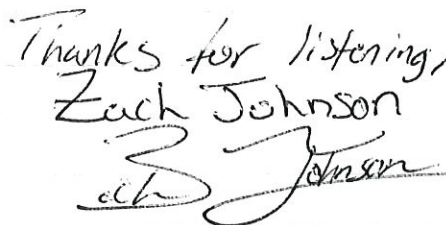 Thanks for listening,
Zach Johnson
Zach Johnson